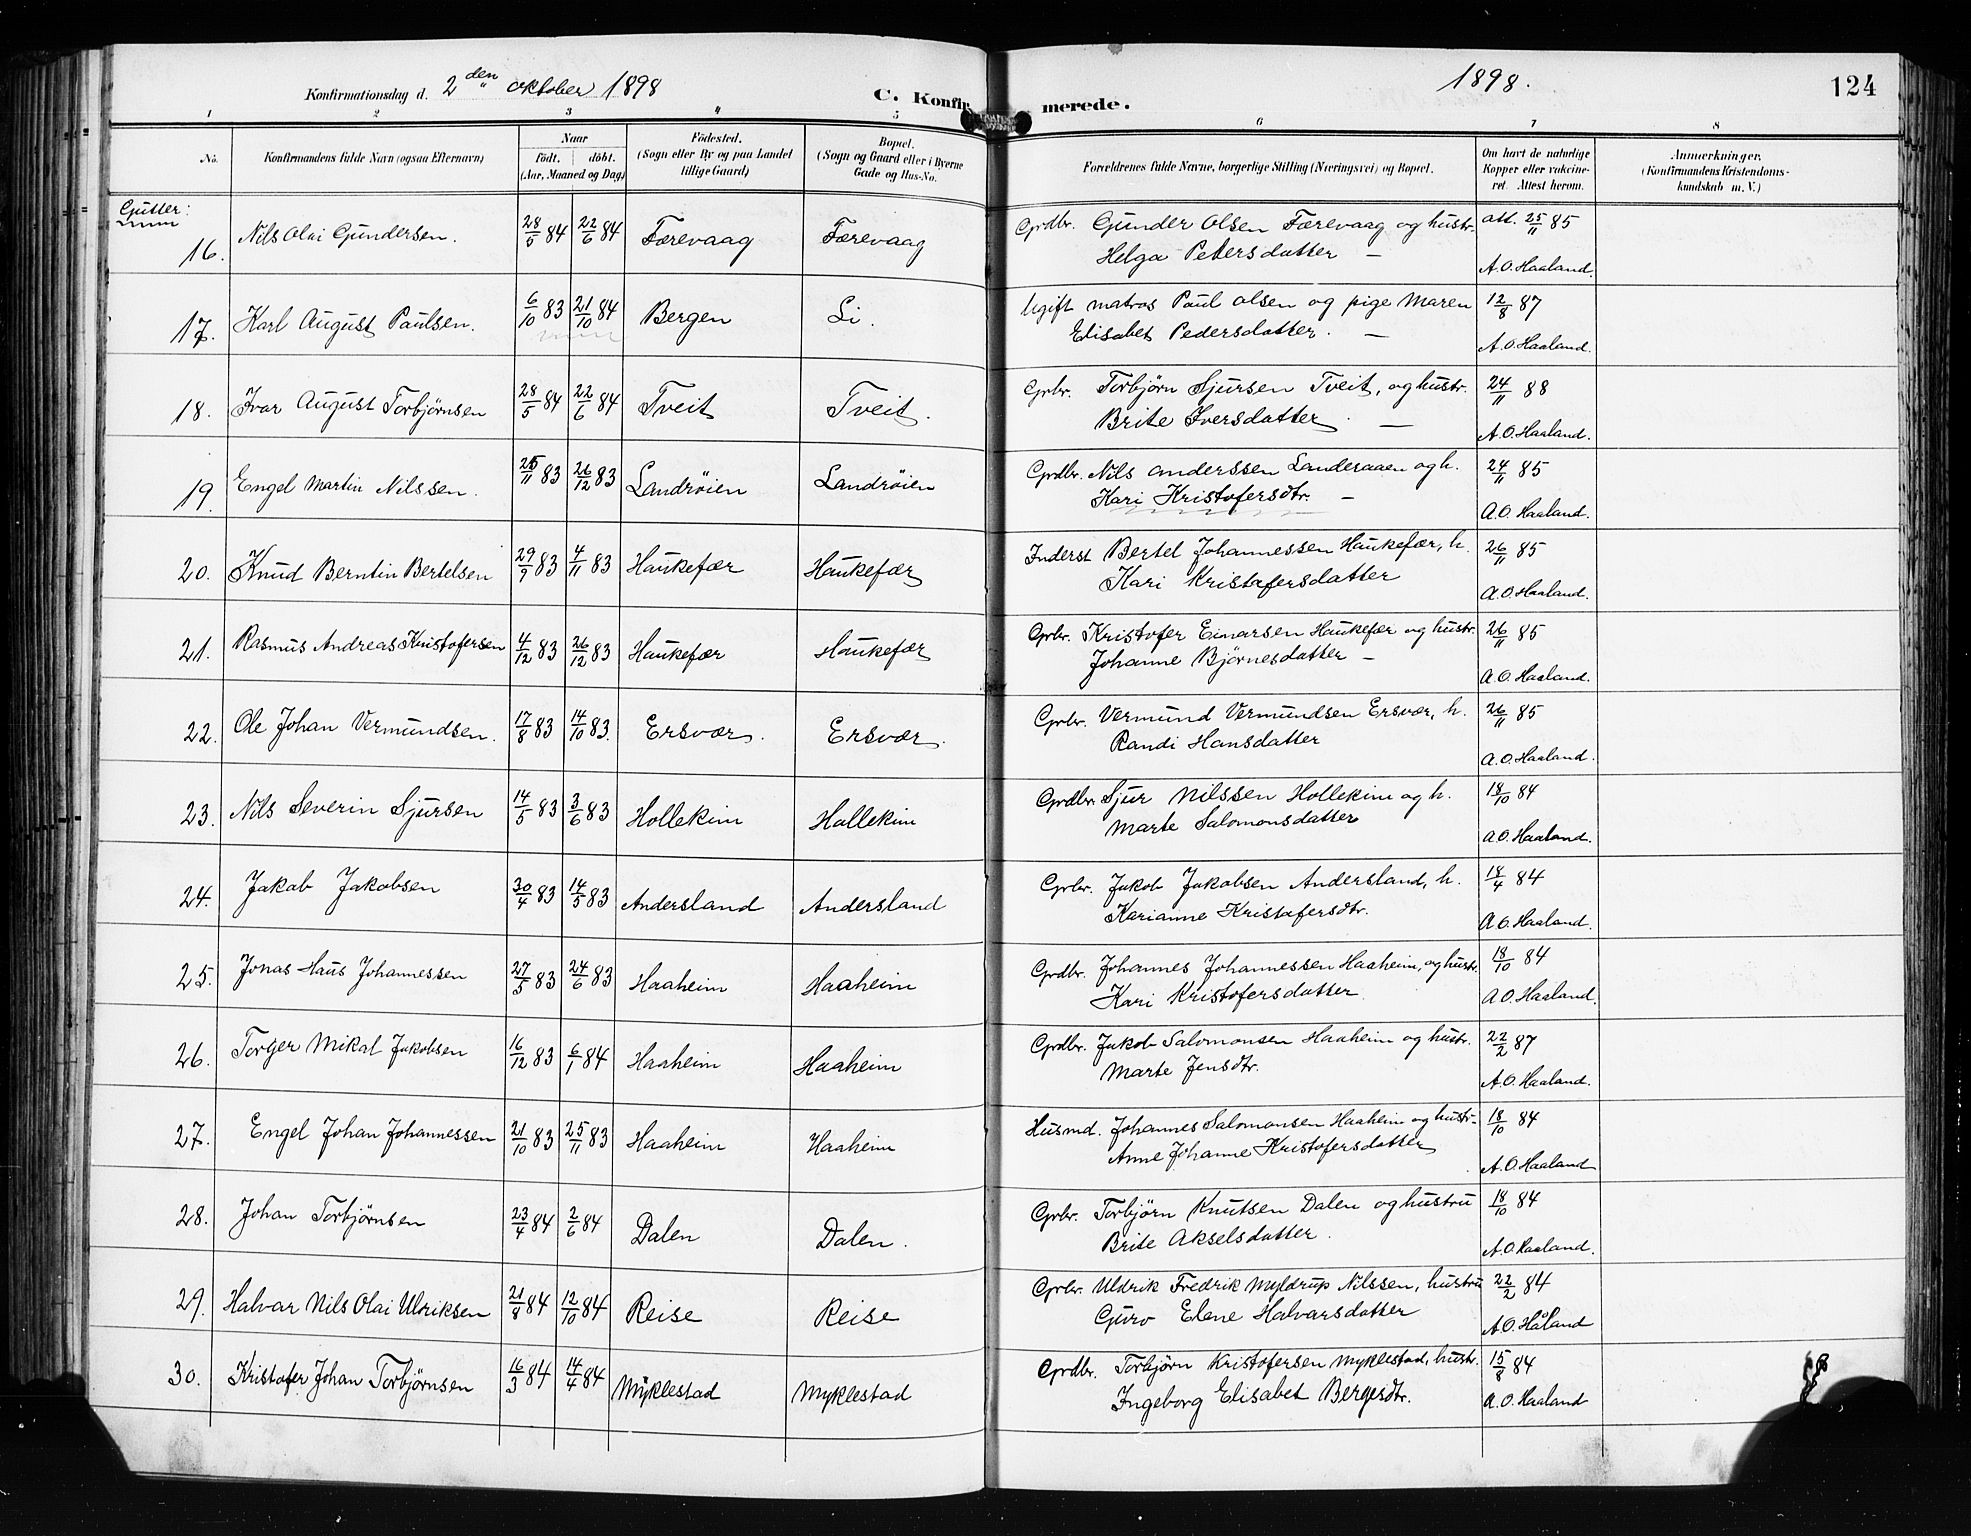 Konfirmationsdag d. 2 den oktober 1898
C. Konfirmerede.
1898.
124
1 2 3 4 5 6 7 8
No.
Konfirmandens fulde Navn (ogsaa Efternavn)
Naar
födt. döbt.
(Aar, Maaned og Dag)
Födested.
(Sogn eller By og paa Landet
tillige Gaard)
Bopæl.
(Sogn og Gaard eller i Byerne
Gade og Hus-No.
Forældrenes fulde Navne, borgerlige Stilling (Næringsvei) og Bopæl.
Om havt de naturlige
Kopper eller vakcine-
ret. Attest herom.
Anmærkninger.
(Konfirmandens Kristendoms-
kundskab m. V.)
Gutter:
16. Nils Olai Gundersen. 28/5 84 22/6 84 Færevaag Færevaag Grdbr. Gunder Olsen Færevaag og hustr. att. 25/11 85
Helga Petersdatter — A.O. Haaland.
17. Karl August Paulsen. 6/10 83 21/10 84 Bergen Li. Ugift matros Paul Olsen og pige Maren 12/8 87
Elisabet Pedersdatter. — A.O. Haaland.
18. Ivar August Torbjørnsen 28/5 84 22/6 84 Tveit Tveit. Grbr. Torbjörn Sjursen Tveit, og hustr. 24/11 88
Brite Iversdatter — A.O. Haaland.
19. Engel Martin Nilssen. 25/11 83 26/12 83 Landrøien Landrøien Grdbr. Nils Anderssen Landeraaen og h. 24/11 85
Kari Kristofersdtr. — A.O. Haaland.
20. Knud Berntin Bertelsen 29/9 83 4/11 83 Haukefær Haukefær Inderst Bertel Johannessen Haukefær, h. 26/11 85
Kari Kristofersdatter A.O. Haaland.
21. Rasmus Andreas Kristofersen 4/12 83 26/12 83 Haukefær Haukefær Grbr. Kristofer Einarsen Haukefær og hustr. 26/11 85
Johanne Bjørnesdatter — A.O. Haaland.
22. Ole Johan Vermundsen. 17/8 83 14/10 83. Ersvær. Ersvær. Grbr. Vermund Vermundsen Ersvær, h. 26/11 85
Randi Hansdatter A.O. Haaland.
23. Nils Severin Sjursen 14/5 83 3/6 83 Hollekim Hollekim Grdbr. Sjur Nilssen Hollekim og h. 18/10 84
Marte Salomonsdatter A.O. Haaland.
24. Jakob Jakobsen 30/4 83 14/5 83 Andersland Andersland Grbr. Jakob Jakobsen Andersland, h. 18/4 84
Karianne Kristofersdtr. A.O. Haaland.
25. Jonas Haus Johannessen 27/5 83 24/6 83 Haaheim Haaheim Grdbr. Johannes Johannessen Haaheim, og hustr. 18/10 84
Kari Kristofersdatter A.O. Haaland.
26. Torger Mikal Jakobsen 16/12 83 6/1 84 Haaheim Haaheim Grdbr. Jakob Salomonsen Haaheim og hustr. 22/2 87
Marte Jensdtr. A.O. Haaland.
27. Engel Johan Johannessen 21/10 83 25/11 83 Haaheim Haaheim Husmd. Johannes Salomonsen Haaheim og hustr. 18/10 84
Anne Johanne Kristofersdatter A.O. Haaland
28. Johan Torbjørnsen 23/4 84 2/6 84 Dalen Dalen. Grbr. Torbjørn Knutsen Dalen og hustru 18/10 84
Brite Akselsdatter. A.O. Haaland.
29. Halvar Nils Olai Ulriksen 21/8 84 12/10 84 Reise Reise Grbr. Uldrik Fredrik Myldrup Nilssen, hustru 22/2 84
Guro Elene Halvarsdatter A.O. Håland
30. Kristofer Johan Torbjørnsen 16/3 84 14/4 84 Myklestad Myklestad Grdbr. Torbjørn Kristofersen Myklestad, hustr. 15/8 84
Ingeborg Elisabet Bergesdtr. A.O. Haaland